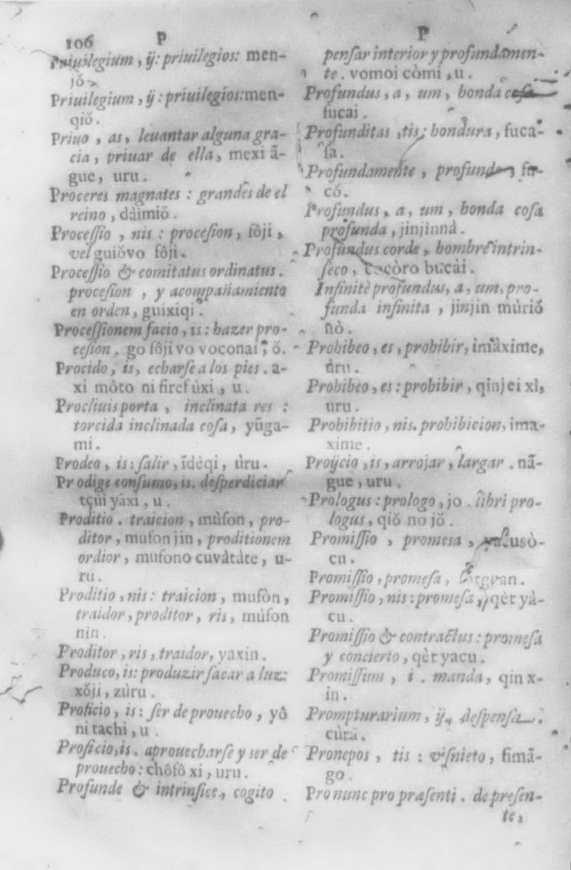 106 P
Priuilegium, ij: priuilegios: men-
jŏ.
Priuilegium, ij: priuilegios: men-
qiŏ.
Priuo, as, leuantar alguna gra-
cia, priuar de ella, mexi ã-
gue, uru.
Proceres magnates: grandes de el
reino, dàimiŏ.
Processio, nis: procesion, fôji,
vel guiŏvo fôji.
Processio & comitatus ordinatus.
procesion, y acompañamiento
en orden, guixiqi.
Processionem facio, is: hazer pro-
cesion, go fôji vo voconai, ŏ.
Procido, is, echarse a los pies. a-
xi mòto ni
Procliuis porta, inclinata res:
torcida inclinada cosa, yũga-
mi.
Prodeo, is: salir, ĩdèqi, ùru.
Prodige consumo, is. desperdiciar
tçùi yàxi, u.
Proditio. traicion, mùfon, pro-
ditor, mufon jin, proditionem
ordior, mufono cuvàtàte, u-
ru.
Proditio, nis: traicion, mufòn,
traidor, proditor, ris, mùfon
nin.
Proditor, ris, traidor, yaxin.
Produco, is: produzir sacar a luz:
xŏji, zùru.
Proficio, is: ser de prouecho, yô
ni tachi, u.
Proficio, is. aprouecharse y ser de
prouecho: chôfô xi, uru.
Profunde & intrinsice, cogito.
P
pensar interior y profundamen-
te. vomoi còmi, u.
Profundus, a, um, honda cosa
fucai.
Profunditas, tis: hondura, fuca-
sa.
Profundamente, profunde,
cô.
Profundus, a, um, honda cosa
profunda, jinjinnà.
Profundus corde, hombre intrin-
seco, cocòro bucài.
Infinitè profundus, a, um. pro-
funda infinita, jinjin mùriŏ
nò.
Prohibeo, es, prohibir, imàxime,
ùru.
Prohibeo, es: prohibir, qinjei xi,
uru.
Prohibitio, nis. prohibicion, ima-
xime.
Proijcio, is, arrojar, largar. nã-
gue, uru.
Prologus: prologo, jo. libri pro-
logus, qiŏ no jŏ.
Promissio, promesa, yacusò-
cu.
Promissio, promesa,
Promissio, nis: promesa, qèt yà-
cu.
Promissio & contractus: promesa
y concierto, qèt yacu.
Promissum, i. manda, qin x-
in.
Prompturarium, ij. despensa.
cùra.
Pronepos, tis: visnieto, fimã-
go.
Pro nunc pro præsenti. de presen-
te,